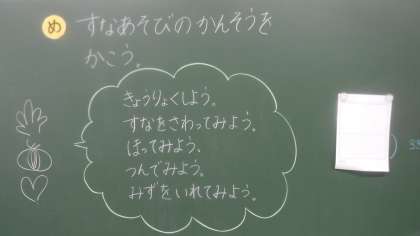 め すなあそびのかんそうを
かこう。
きょうりょくしよう。
すなをさわってみよう。
ほってみよう、
つんでみよう。
みずをいれてみよう。